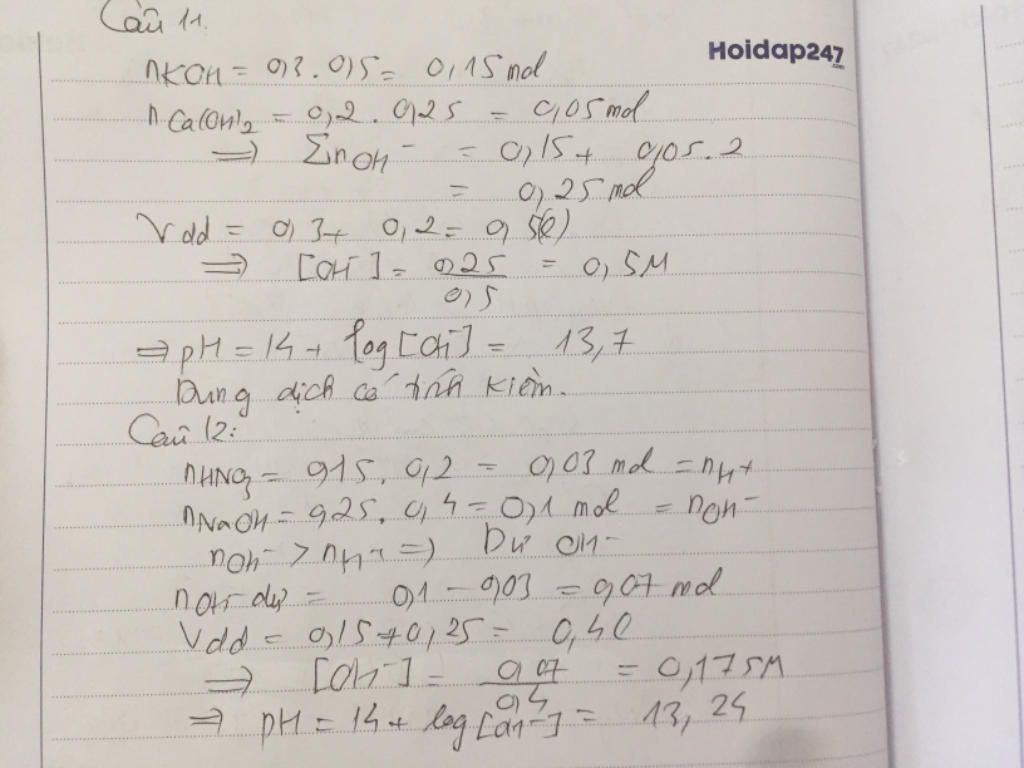 Câu 11.
Hoidap247.com
nKOH = 0,3 . 0,5 = 0,15 mol
nCa(OH)2 = 0,2 . 0,25 = 0,05 mol
=> ΣnOH- = 0,15 + 0,05.2
= 0,25 mol
Vdd = 0,3 + 0,2 = 0,5(l)
=> [OH-] = 0,25/0,5 = 0,5M
=> pH = 14 + log[OH-] = 13,7
Dung dịch có tính kiềm.
Câu 12:
nHNO3 = 0,15 . 0,2 = 0,03 mol = nH+
nNaOH = 0,25 . 0,4 = 0,1 mol = nOH-
nOH- > nH+ => Dư OH-
nOH- dư = 0,1 - 0,03 = 0,07 mol
Vdd = 0,15 + 0,25 = 0,4l
=> [OH-] = 0,07/0,4 = 0,175M
=> pH = 14 + log[OH-] = 13,24